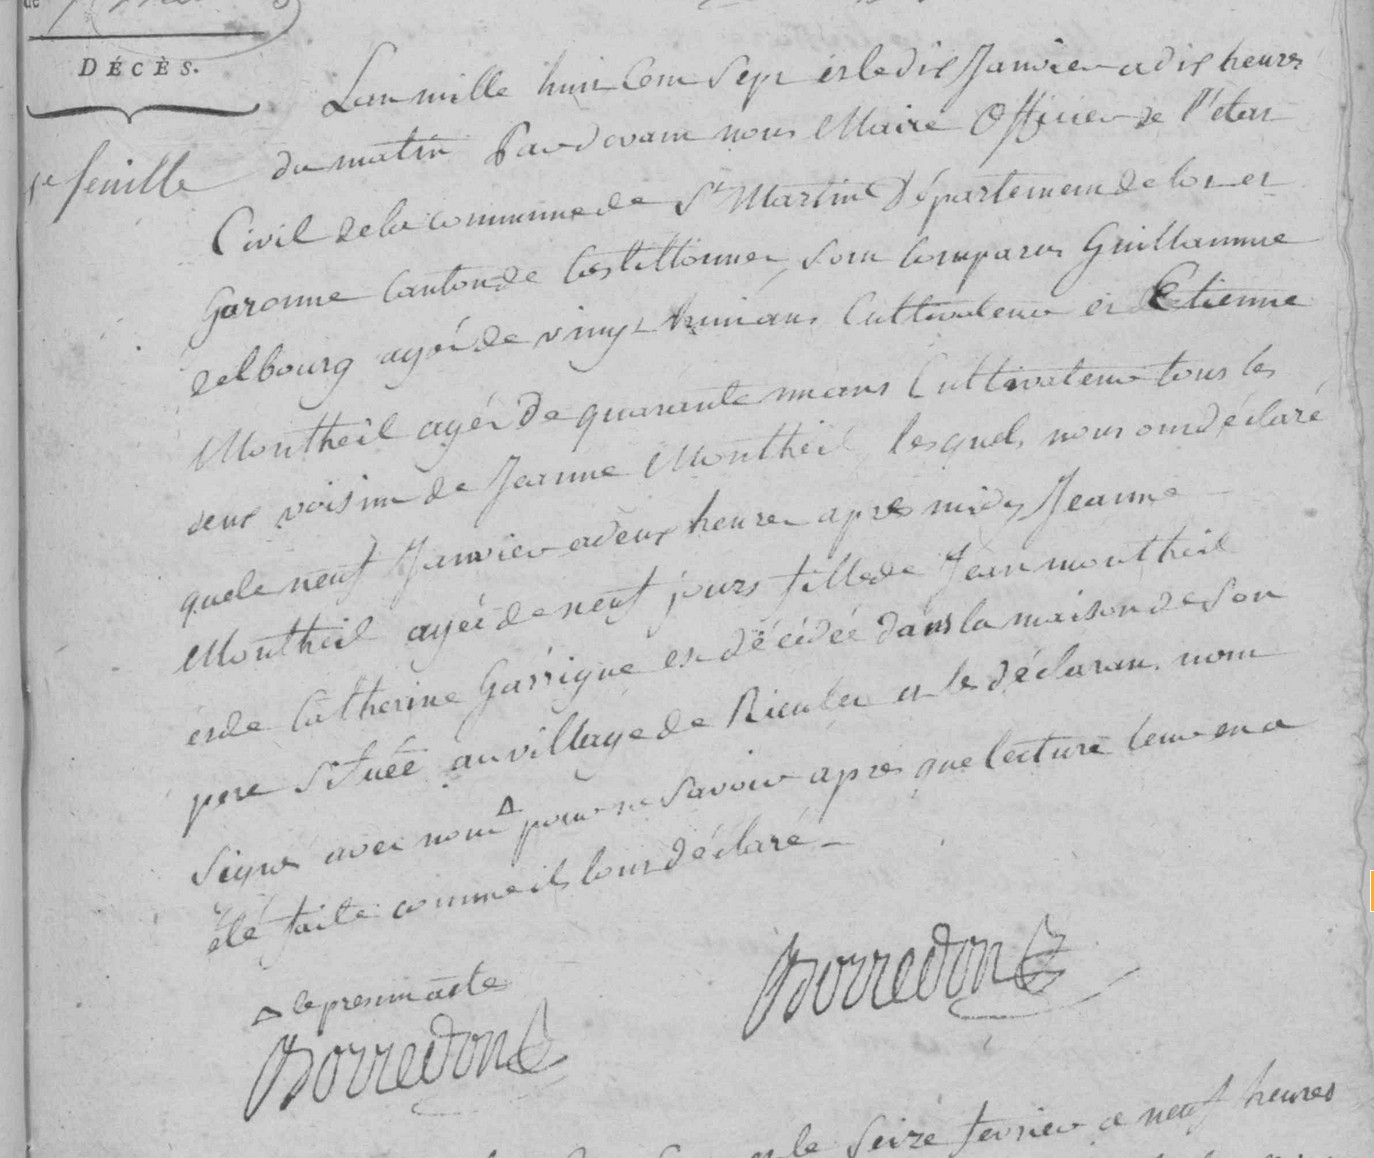 DÉCÈS.
1e feuille
Lan mille huit Cent Sept et le dix Janvier a dix heures
du matin Pardevant nous Maire Officier de l'etat
Civil de la commune de St Martin Département de lot et
Garonne Canton de Castillonner, sont Comparus Guillaumme
delbourg agée de vingt huit ans Cultivateur et Etienne
Montheil agée de quarante un ans Cultivateur tous les
deux voisin de Jeanne Montheil, lesquels nous ont déclaré
que le neuf Janvier a deux heures apres midy Jeanne
Montheil agée de neuf jours fille de Jean montheil
et de Catherine Garrigue est décédée dans la maison de Son
pere Située au village de et les déclarant nont
Signé avec nous △ pour ne Savoir apres que lecture leur en a
élé faite comme ils lont déclaré -
△ le present acte
Borredon
Borredon
et le Seize fevrier a neuf heures